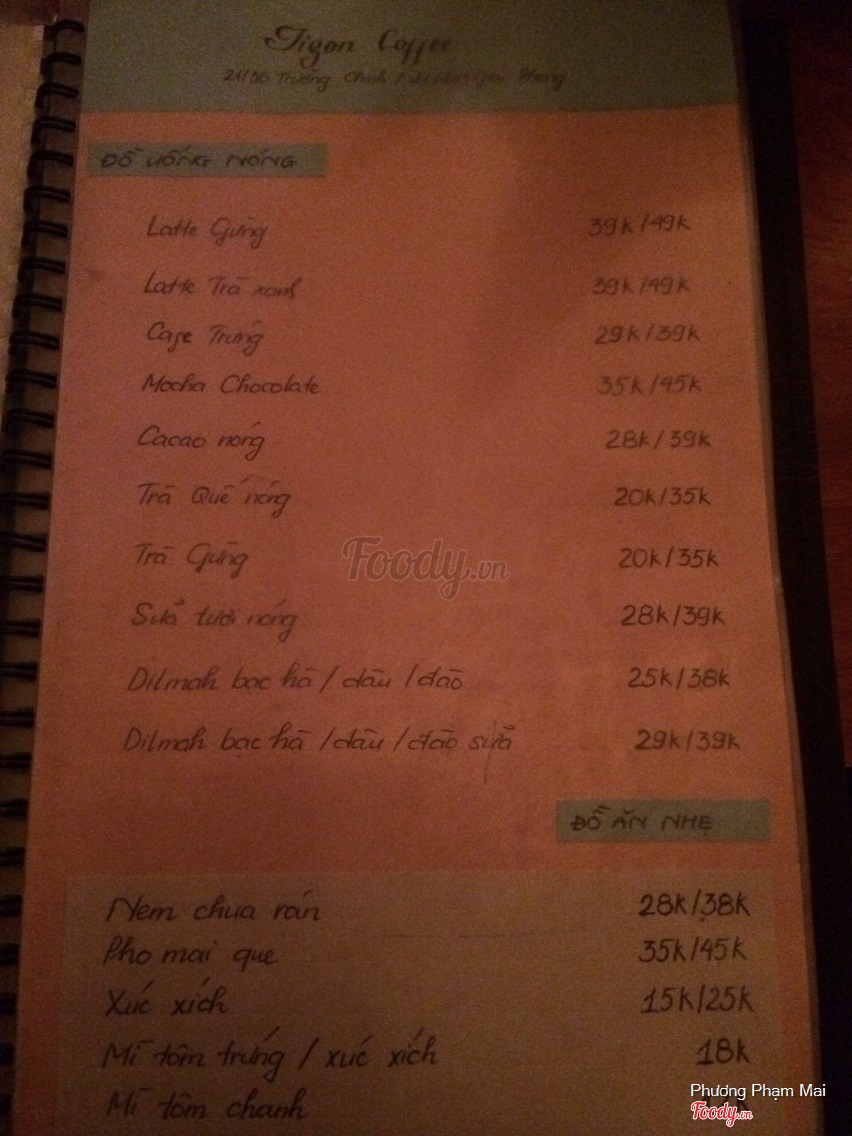 Tigon Coffee
21/50 Trường Chinh /
ĐỒ UỐNG NÓNG
Latte Gừng 39k/49k
Latte Trà xanh 39k/49k
Cafe Trứng 29k/39k
Mocha Chocolate 35k/45k
Cacao nóng 28k/39k
Trà Quế nóng 20k/35k
Trà Gừng 20k/35k
Sữa tươi nóng 28k/39k
Dilmah bạc hà / dâu / đào 25k/38k
Dilmah bạc hà / dâu / đào sữa 29k/39k
ĐỒ ĂN NHẸ
Nem chua rán 28k/38k
Pho mai que 35k/45k
Xúc xích 15k/25k
Mì tôm trứng / xúc xích 18k
Mì tôm chanh
Foody.vn
Phương Phạm Mai
Foody.vn